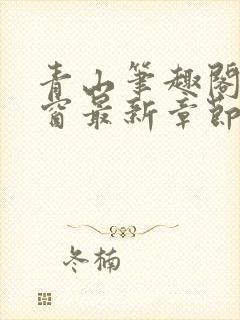 青山筆趣閣
窗最新章節
冬楠